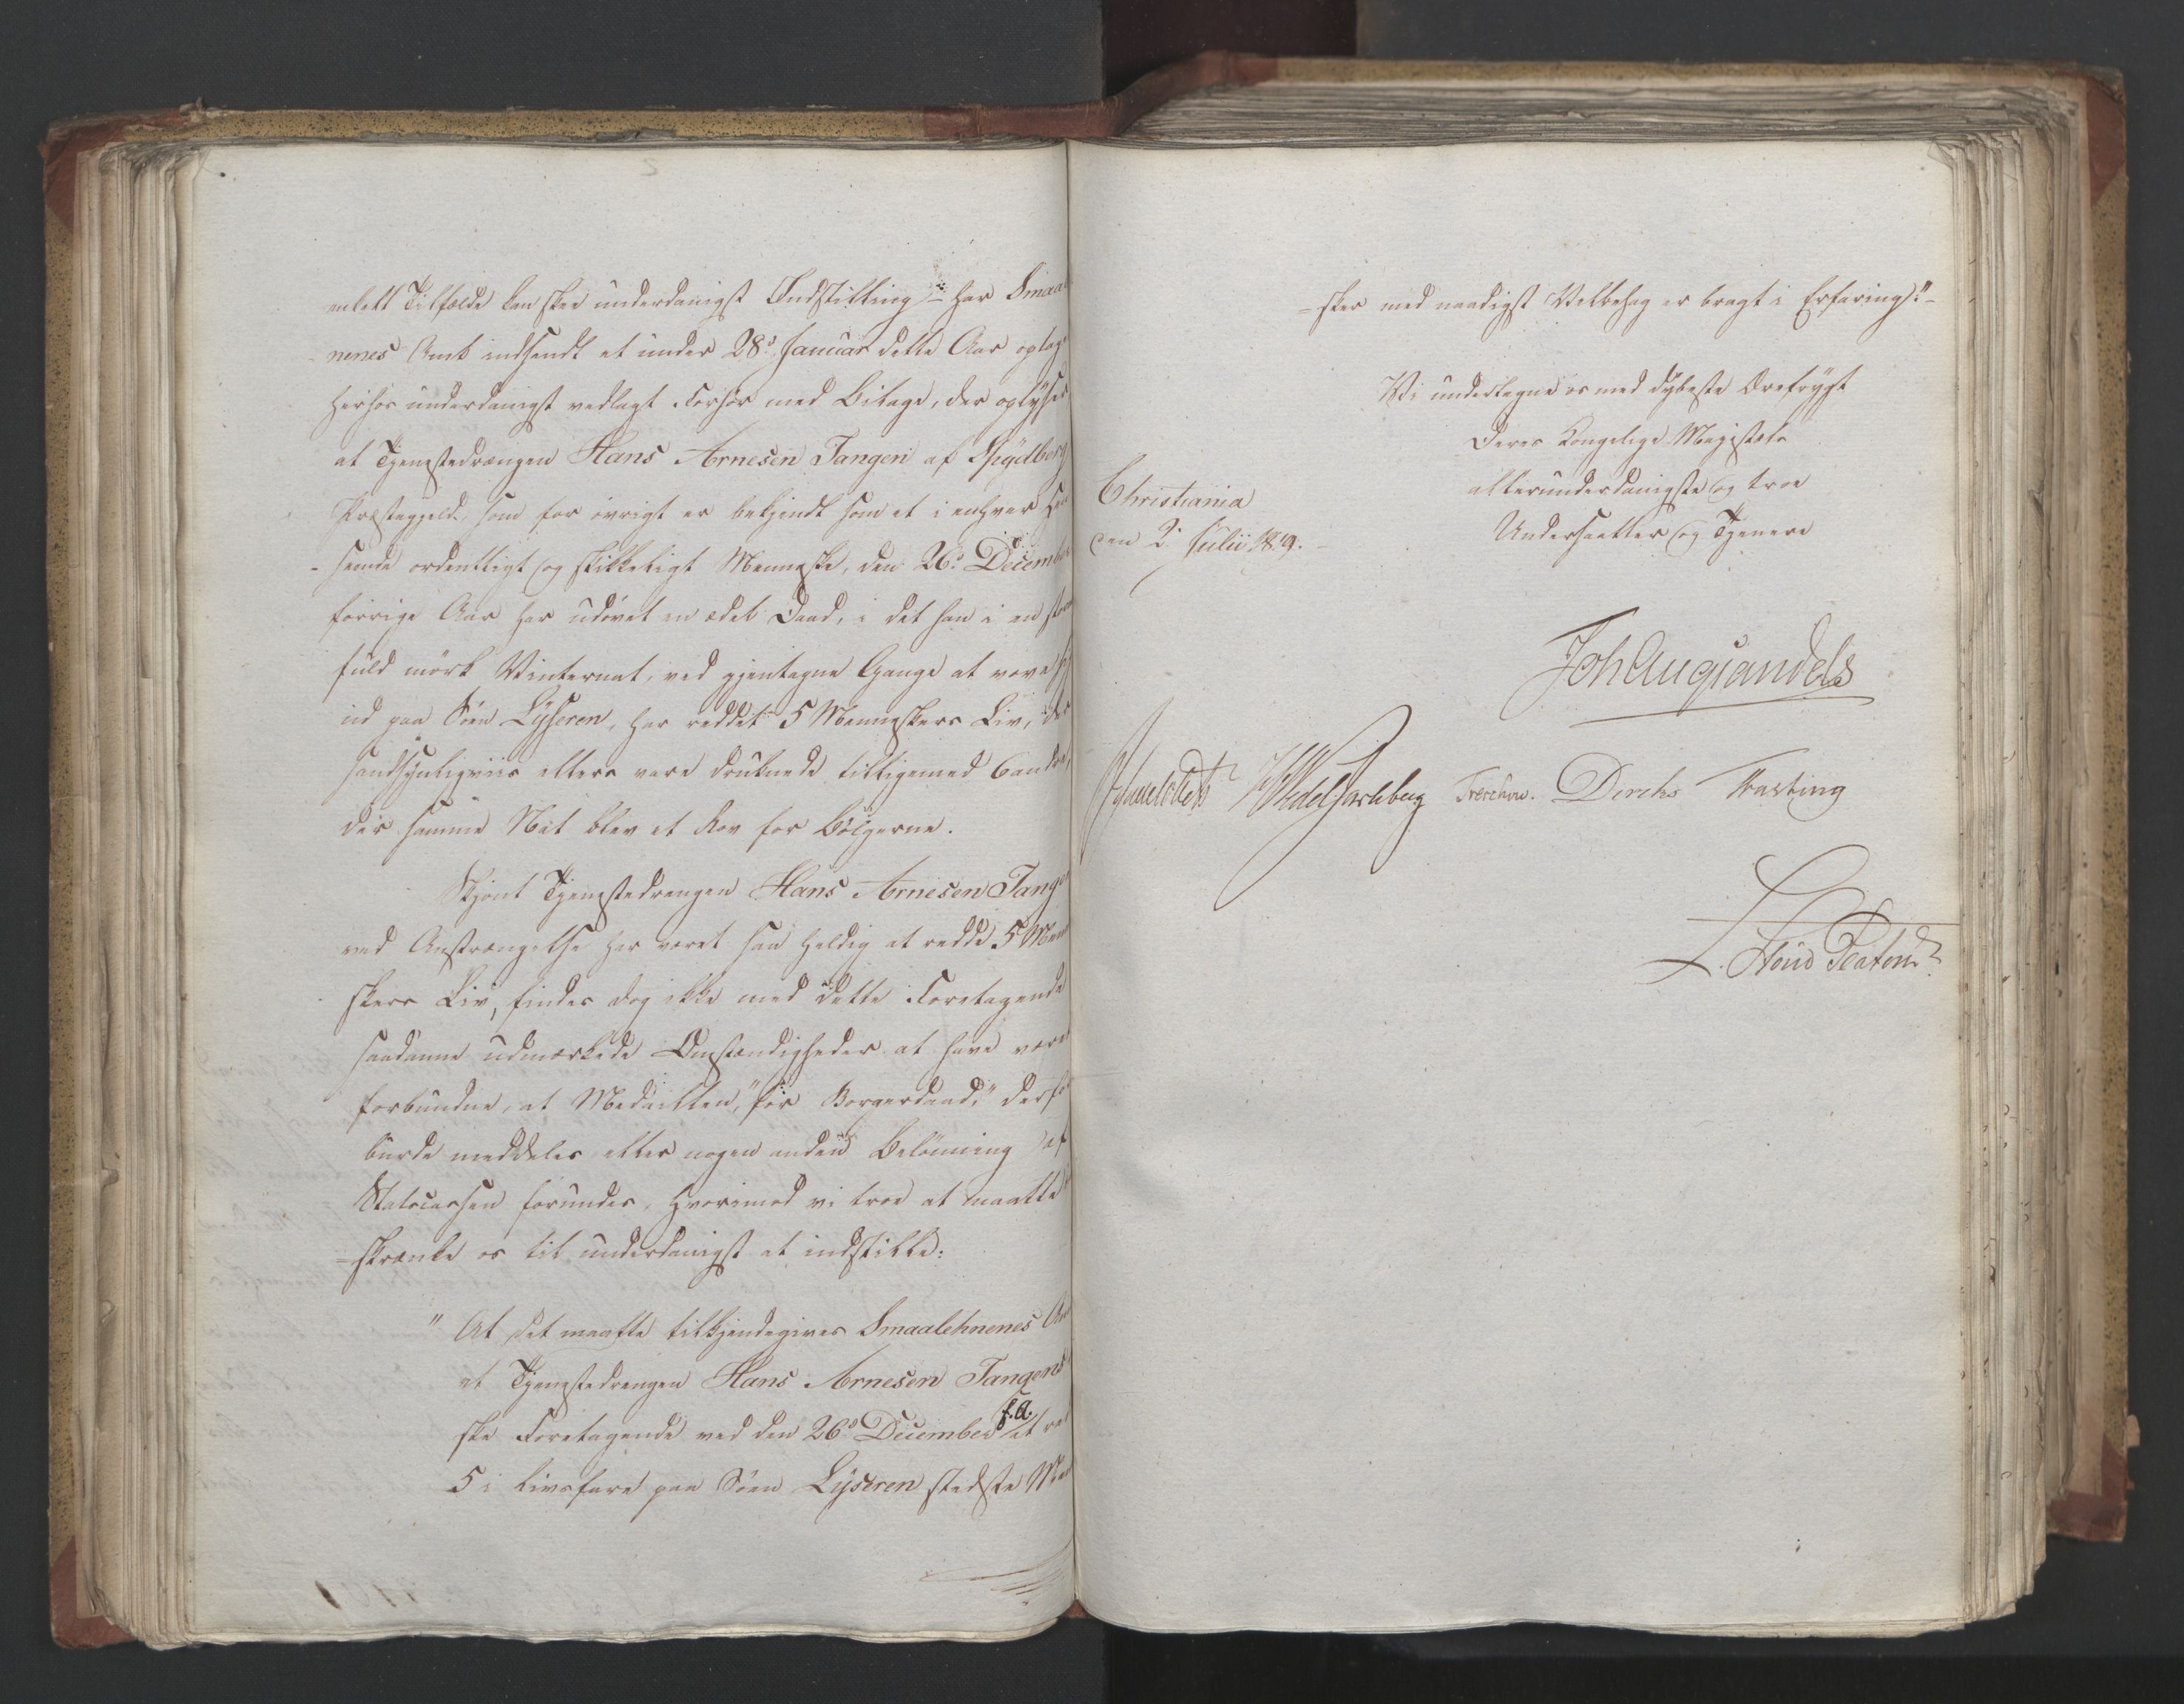 enkelt Tilfælde kan skee underdanigst Indstilling – har Smaal
nenes Amt indsendt et under 28d Januar dette Aar optag
herhos underdanigst vedlagt Forhør med Bilage, der oplyser
at Tjenestedrængen Hans Arnesen Tangen af Spydberg
Præstegjeld, som for øvrigt er bekjendt som et i enhver Hen
-seende ordentligt og skikkeligt Menneske, den 26d December
forrige Aar har udøvet en ædel Daad, i det han i en storm
fuld mørk Vinternat, ved gjentagne Gange at vove sig
ud paa Søen Lyseren, har reddet 5 Menneskers Liv, der
sandsynligviis ellers vare druknede tilligemed 6 andre,
der samme Nat blev et Rov for Bølgerne.
Skjønt Tjenestedrengen Hans Arnesen Tangen
ved Anstrængelse har været saa heldig at redde 5 Menne
skers Liv, findes dog ikke med dette Foretagende
saadanne udmærkede Omstændigheder at have været
forbundne, at Medaillen, "for Borgerdaad," derfor
burde meddeles eller nogen anden Belønning af
Statscassen forundes, hvorimod vi troe at maatte
=skrænke os til underdanigst at indstille:
" At det maatte tilkjendegives Smaalehnenes Amt
at Tjenestedrengen Hans Arnesen Tangens
ske Foretagende ved den 26d December f. A. at re
5 i Livsfare paa Søen Lyseren stedte Men
=sker med naadigst Velbehag er bragt i Erfaring."-
Vi undertegne os med dybeste Ærefrygt
Deres Kongelige Majestæts
allerunderdanigste og troe
Undersaatter og Tjenere
Christiania
den 2d Julii 1819.
Joh Aug Sandels
Wedel Jarlsberg Treschow. Diriks Fasting